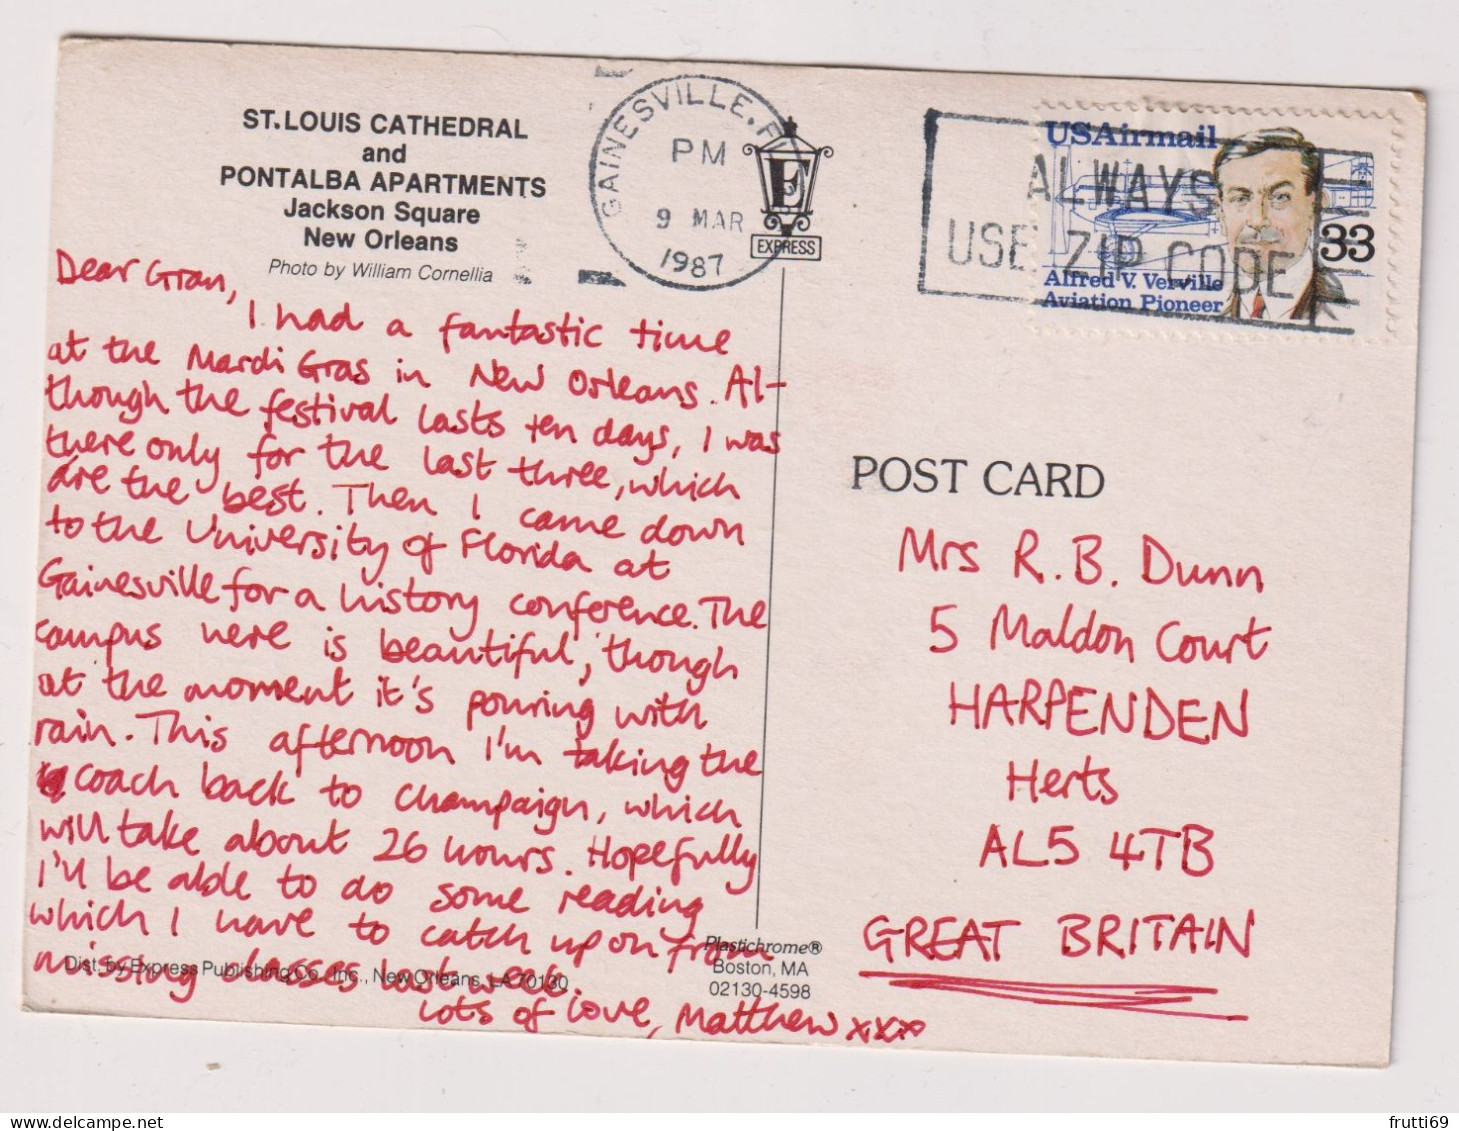 ST. LOUIS CATHEDRAL
and
PONTALBA APARTMENTS
Jackson Square
New Orleans
Photo by William Cornellia
Dear Gran,
I had a fantastic time
at the Mardi Gras in New Orleans. Al-
though the festival lasts ten days, I was
there only for the last three, which
are the best. Then I came down
to the University of Florida at
Gainesville for a history conference. The
campus here is beautiful, though
at the moment it's pouring with
rain. This afternoon I'm taking the
coach back to Champaign, which
will take about 26 hours. Hopefully
I'll be able to do some reading
which I have to catch up on from
missing classes last week.
Lots of love, Matthew xxx
Dist. by Express Publishing Co., Inc., New Orleans, LA 70130
GAINESVILLE, FL
PM
9 MAR
1987
E
EXPRESS
ALWAYS
USE ZIP CODE
USAirmail
33
Alfred V. Verville
Aviation Pioneer
POST CARD
Mrs R. B. Dunn
5 Maldon Court
HARPENDEN
Herts
AL5 4TB
GREAT BRITAIN
Plastichrome®
Boston, MA
02130-4598
frutti69